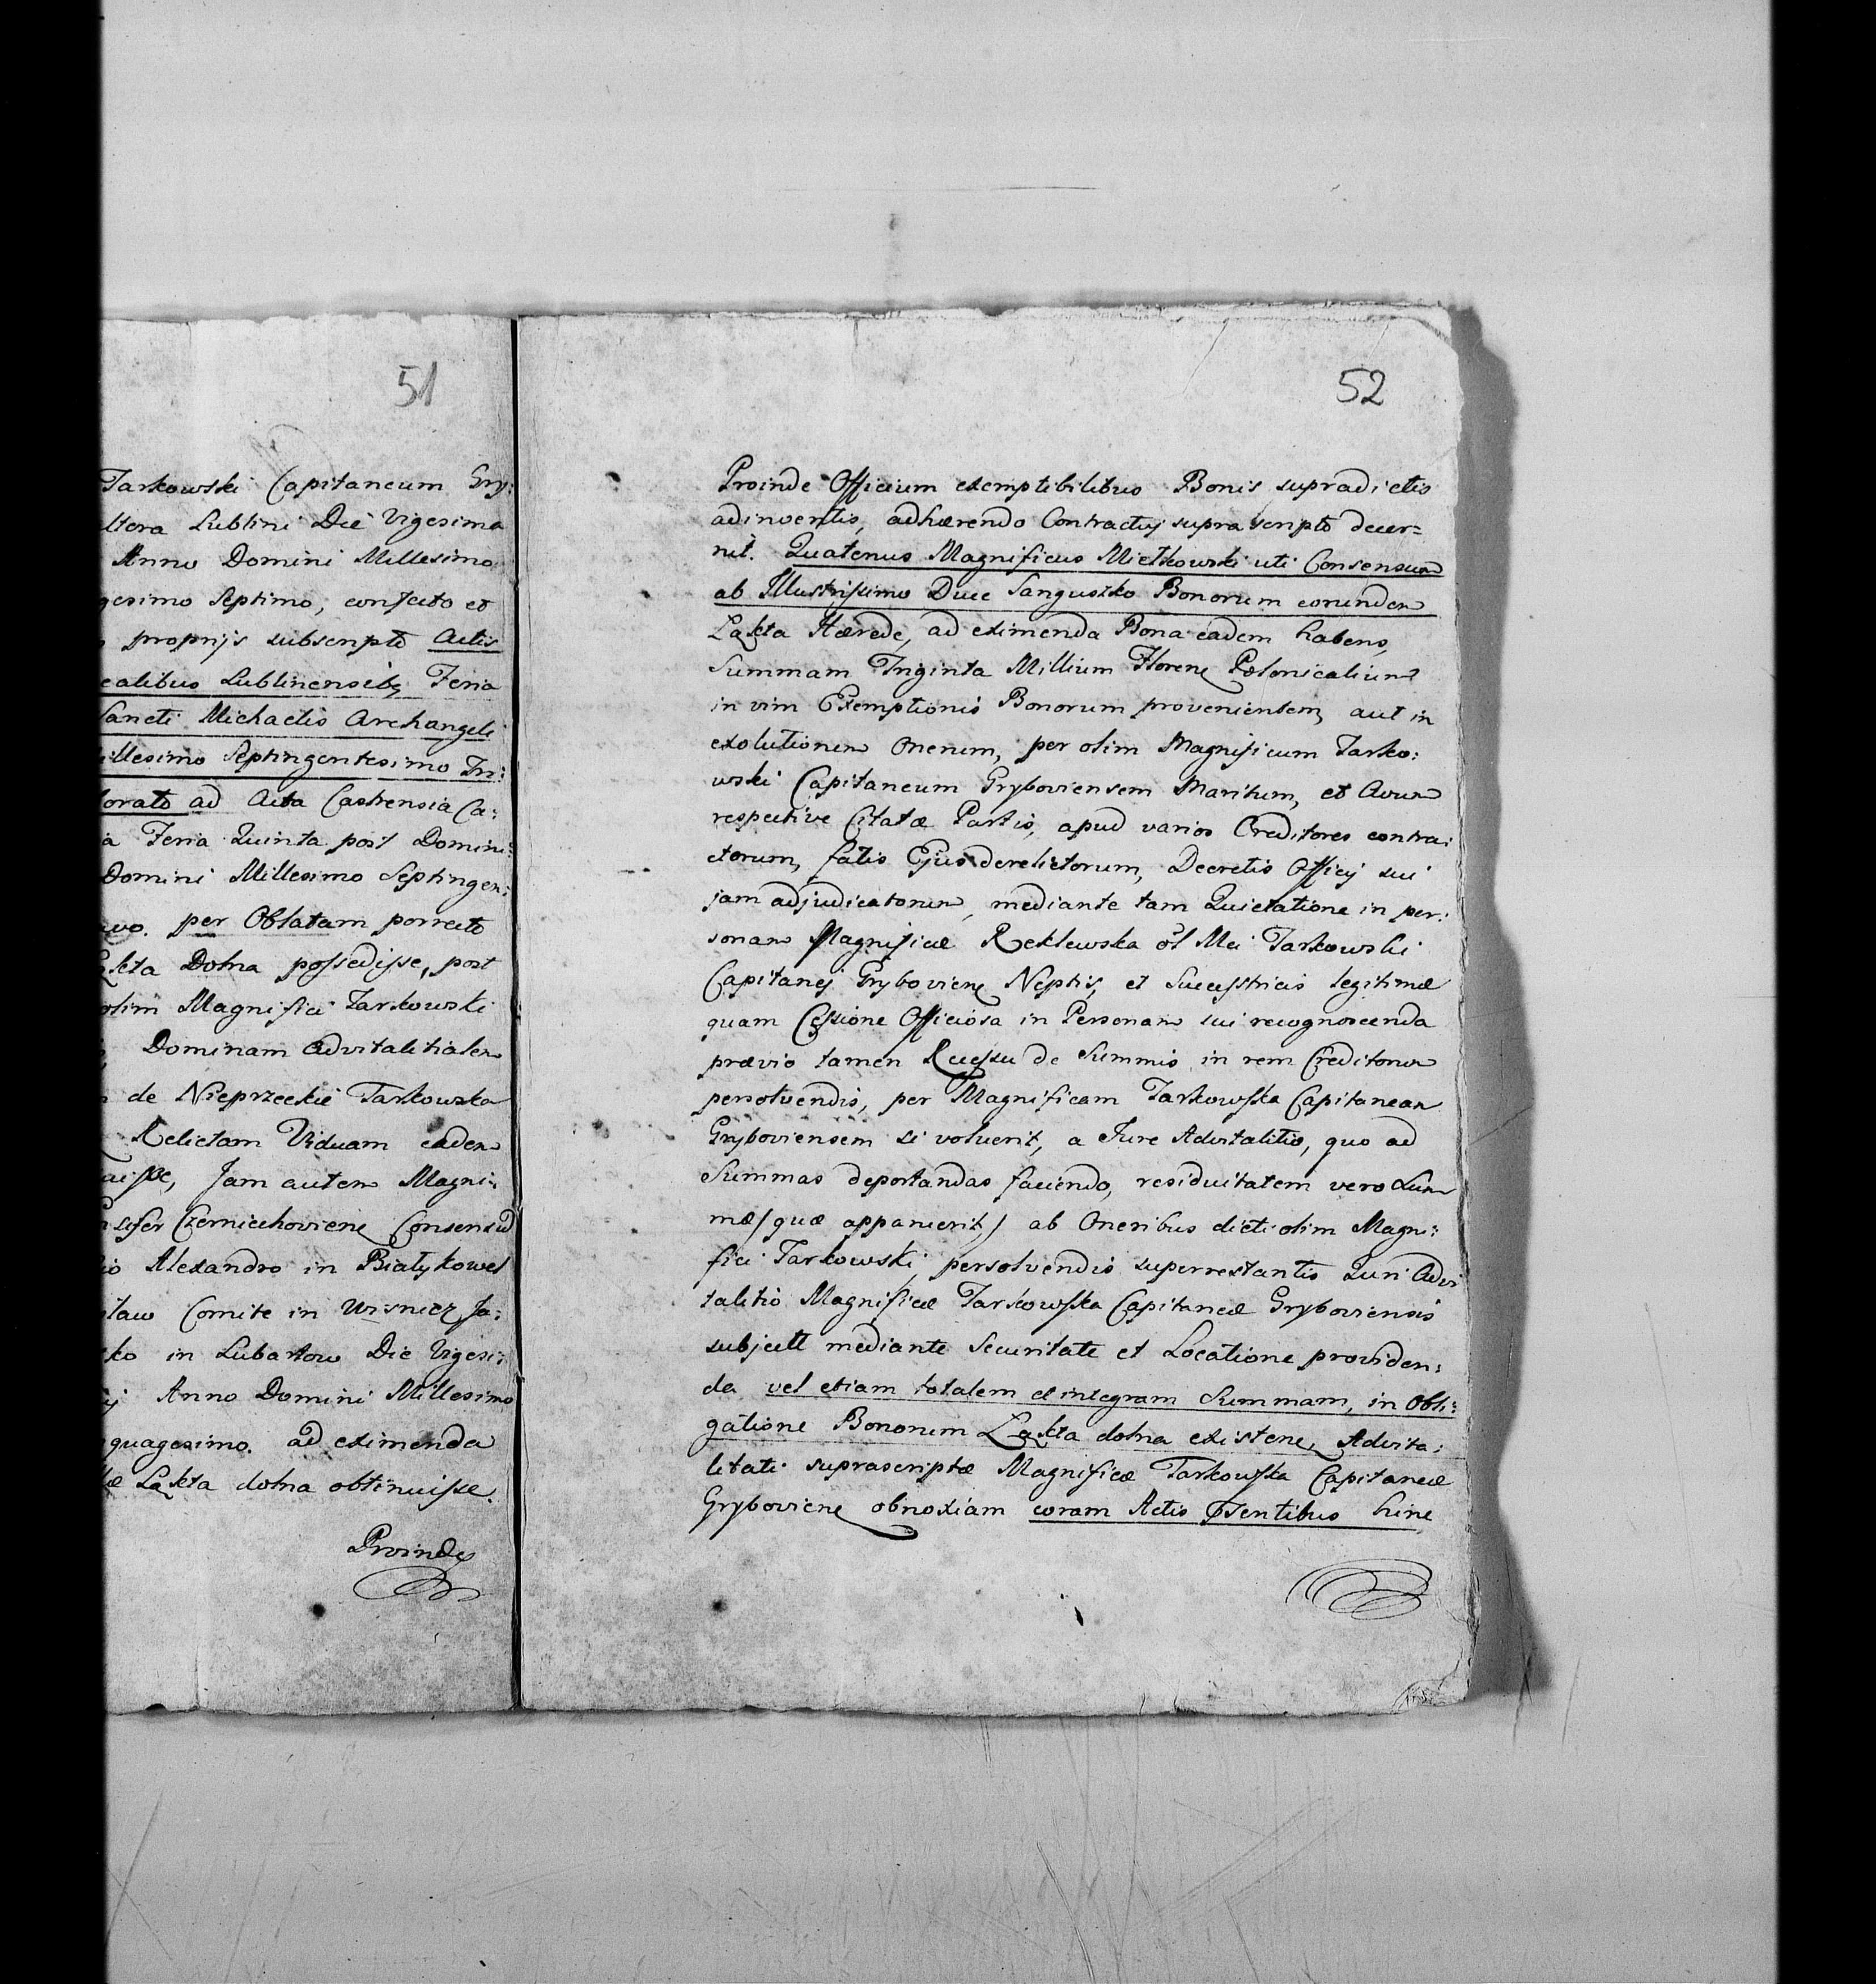 51
Tarkowski Capitaneum Gry:
altera Lublini Die Vigesima
Anno Domini Millesimo
gesimo Septimo, confecto et
proprijs subscripto Actis
calibus Lublinensibq Feria
Sancti Michaelis Archangeli
illesimo Septingentesimo Tri:
lorato ad Acta Castrensia Ca:
a Feria Quinta post Domini:
Domini Millesimo Septingen:
avo. per Oblatam porrecto
kta Dolna possedisse, post
olim Magnifici Tarkowski
Dominam Advitalitialem
de Nieprzeckie Tarkowska
Relictam Viduam eadem
uisse, Jam autem Magni:
sifer Czerniechoviens Consensu
io Alexandro in Białykowel
slaw Comite in Wisnicz Ja:
ko in Lubartow Die Vigesi:
ij Anno Domini Millesimo
quagesimo. ad eximenda
æ Łąkta dolna obtinuisse.
Proinde
52
Proinde Officium exemptibilibus Bonis supradictis
adinventis, adhærendo Contractuj supra scripto decer=
nit. Quatenus Magnificus Mietkowski uti Consensum
ab Illustrissimo Duce Sanguszko Bonorum eorundem
Łąkta Hærede, ad eximenda Bona eadem habens,
Summam Triginta Millium Floren Polonicalium
in vim Exemptionis Bonorum provenientem, aut in
exolutionem Onerum, per olim Magnificum Tarko:
wski Capitaneum Gryboviensem Maritum, et Avum
respective Citatæ Partis, apud varios Creditores contra:
ctorum, fatis Ejus derelictorum, Decretis Officij sui
jam adjudicatorum, mediante tam Quietatione in per:
sonam Magnificæ Reklewska ol Mci Tarkowski
Capitanej Grybovien Neptis, et Successtricis legitimæ
quam Cessione Officiosa in Personam sui recognoscenda
prævio tamen Recessu de Summis in rem Creditorum
persolvendis, per Magnificam Tarkowska Capitaneam
Gryboviensem si voluerit, a Jure Advitalitio, quo ad
Summas deportandas faciendo, residuitatem vero Sum
mæ (quæ apparuerit) ab Oneribus dicti olim Magni:
fici Tarkowski persolvendis superrestantis Juri Advi
talitio Magnificæ Tarkowska Capitaneæ Gryboviensis
subject mediante Securitate et Locatione providen:
da vel etiam totalem et integram Summam, in Obli:
gatione Bonorum Łąkta dolna existens, Advita:
litati suprascriptæ Magnificæ Tarkowska Capitaneæ
Grybovien obnoxiam coram Actis psentibus hinc